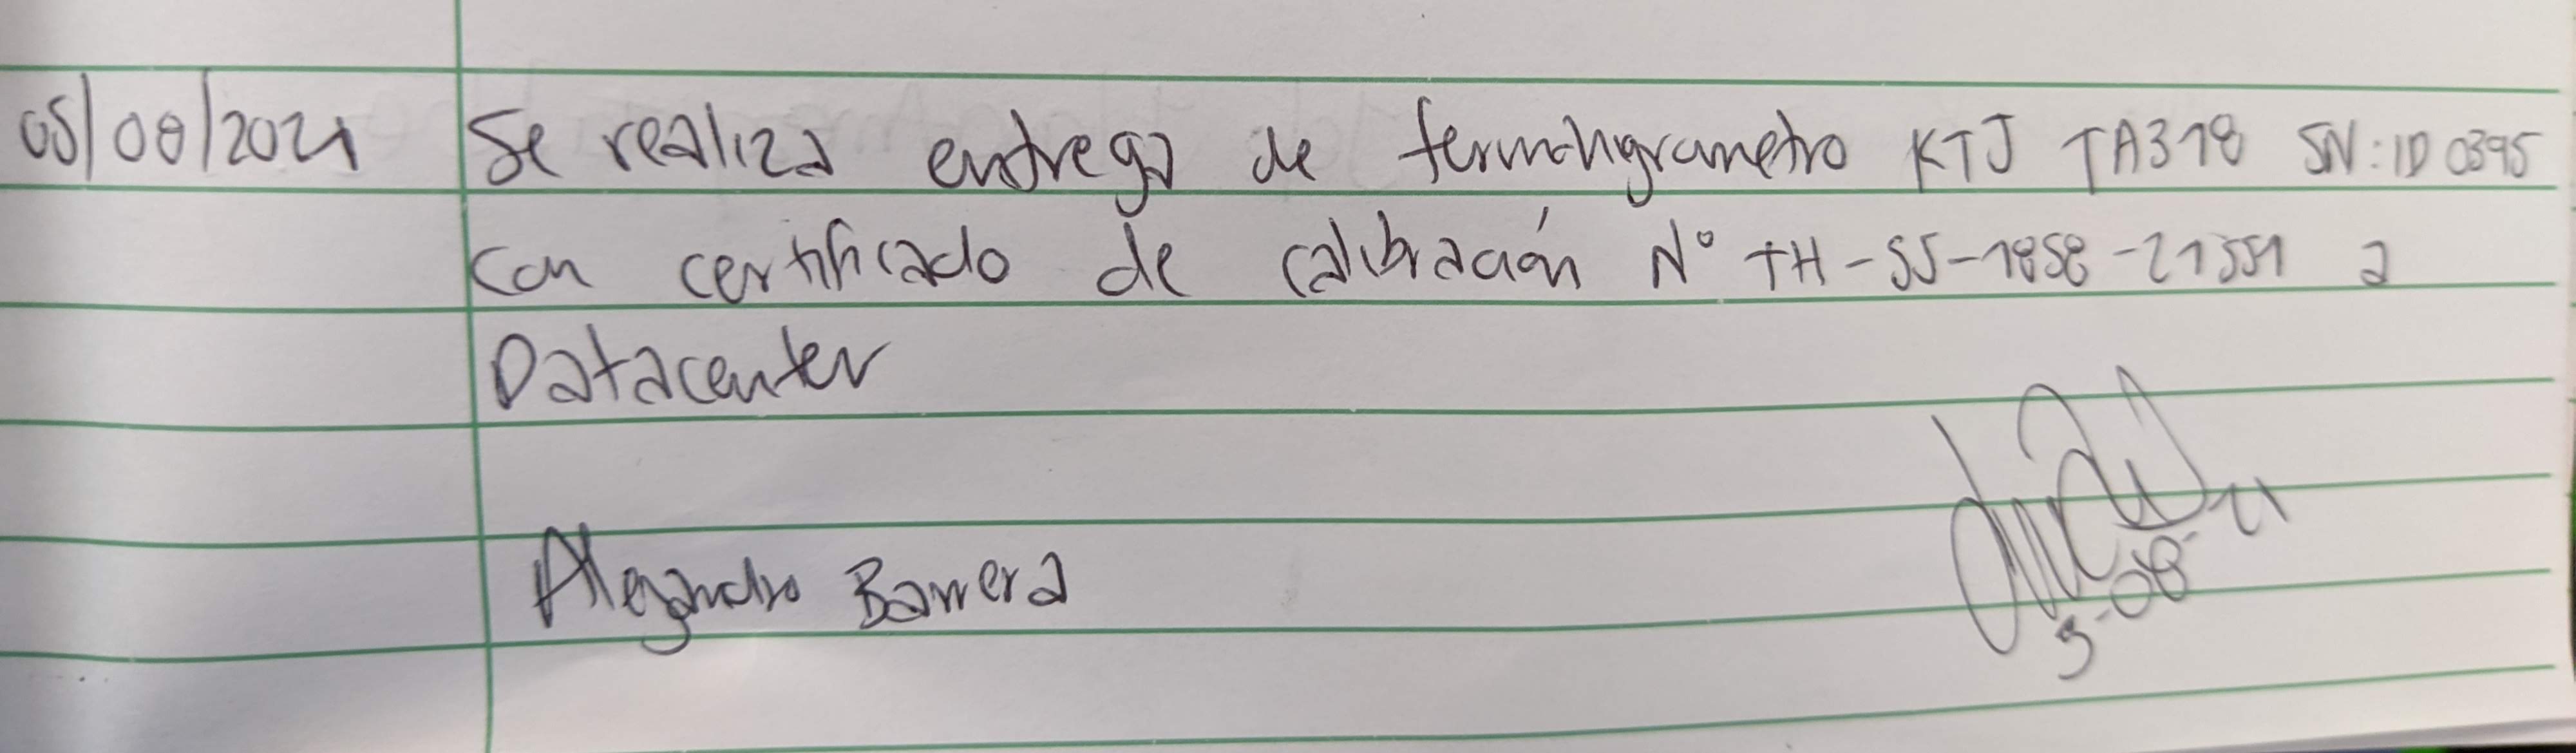 05/08/2021 Se realiza entrega de termohigrometro KTJ TA318 SN: ID 0395
con certificado de calibración N° TH-SS-1858-21551 a
Datacenter
Alejandro Barrera
5-08-21